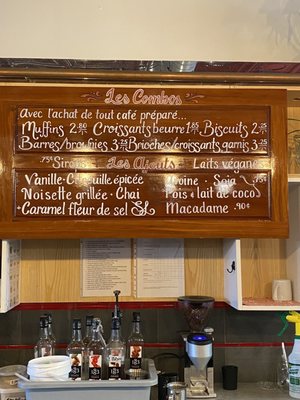 Les Combos
Avec l'achat de tout café préparé...
Muffins 2 Croissants beurre 1 Biscuits 2
Barres/brownies 3 Brioches/croissants garnis 3
.75¢ Sirops Les Ajouts Laits végétaux
Vanille · Citrouille épicée Avoine · Soja .75
Noisette grillée · Chai Pois & lait de coco
*Caramel fleur de sel Macadame .90¢